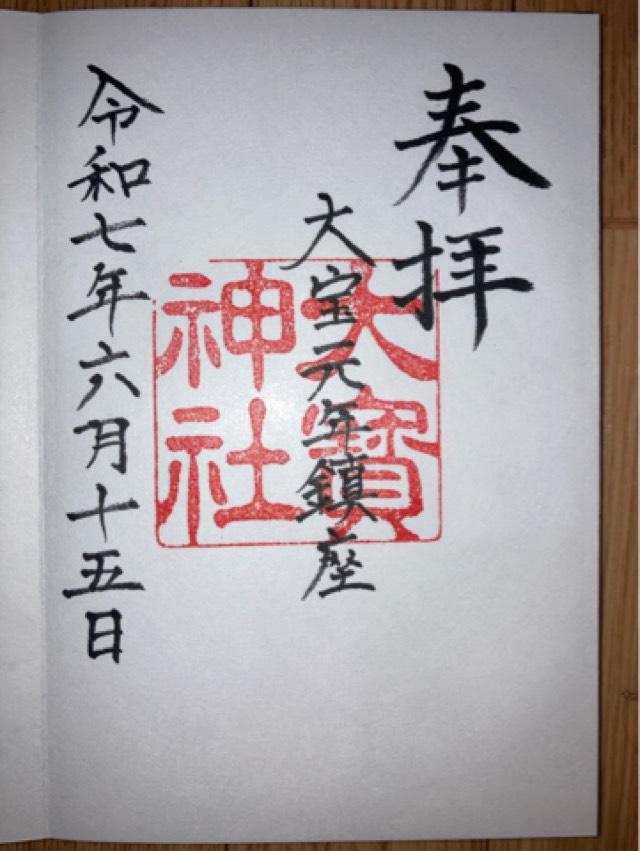 奉拝
大宝元年鎮座
大寳
神社
令和七年六月十五日